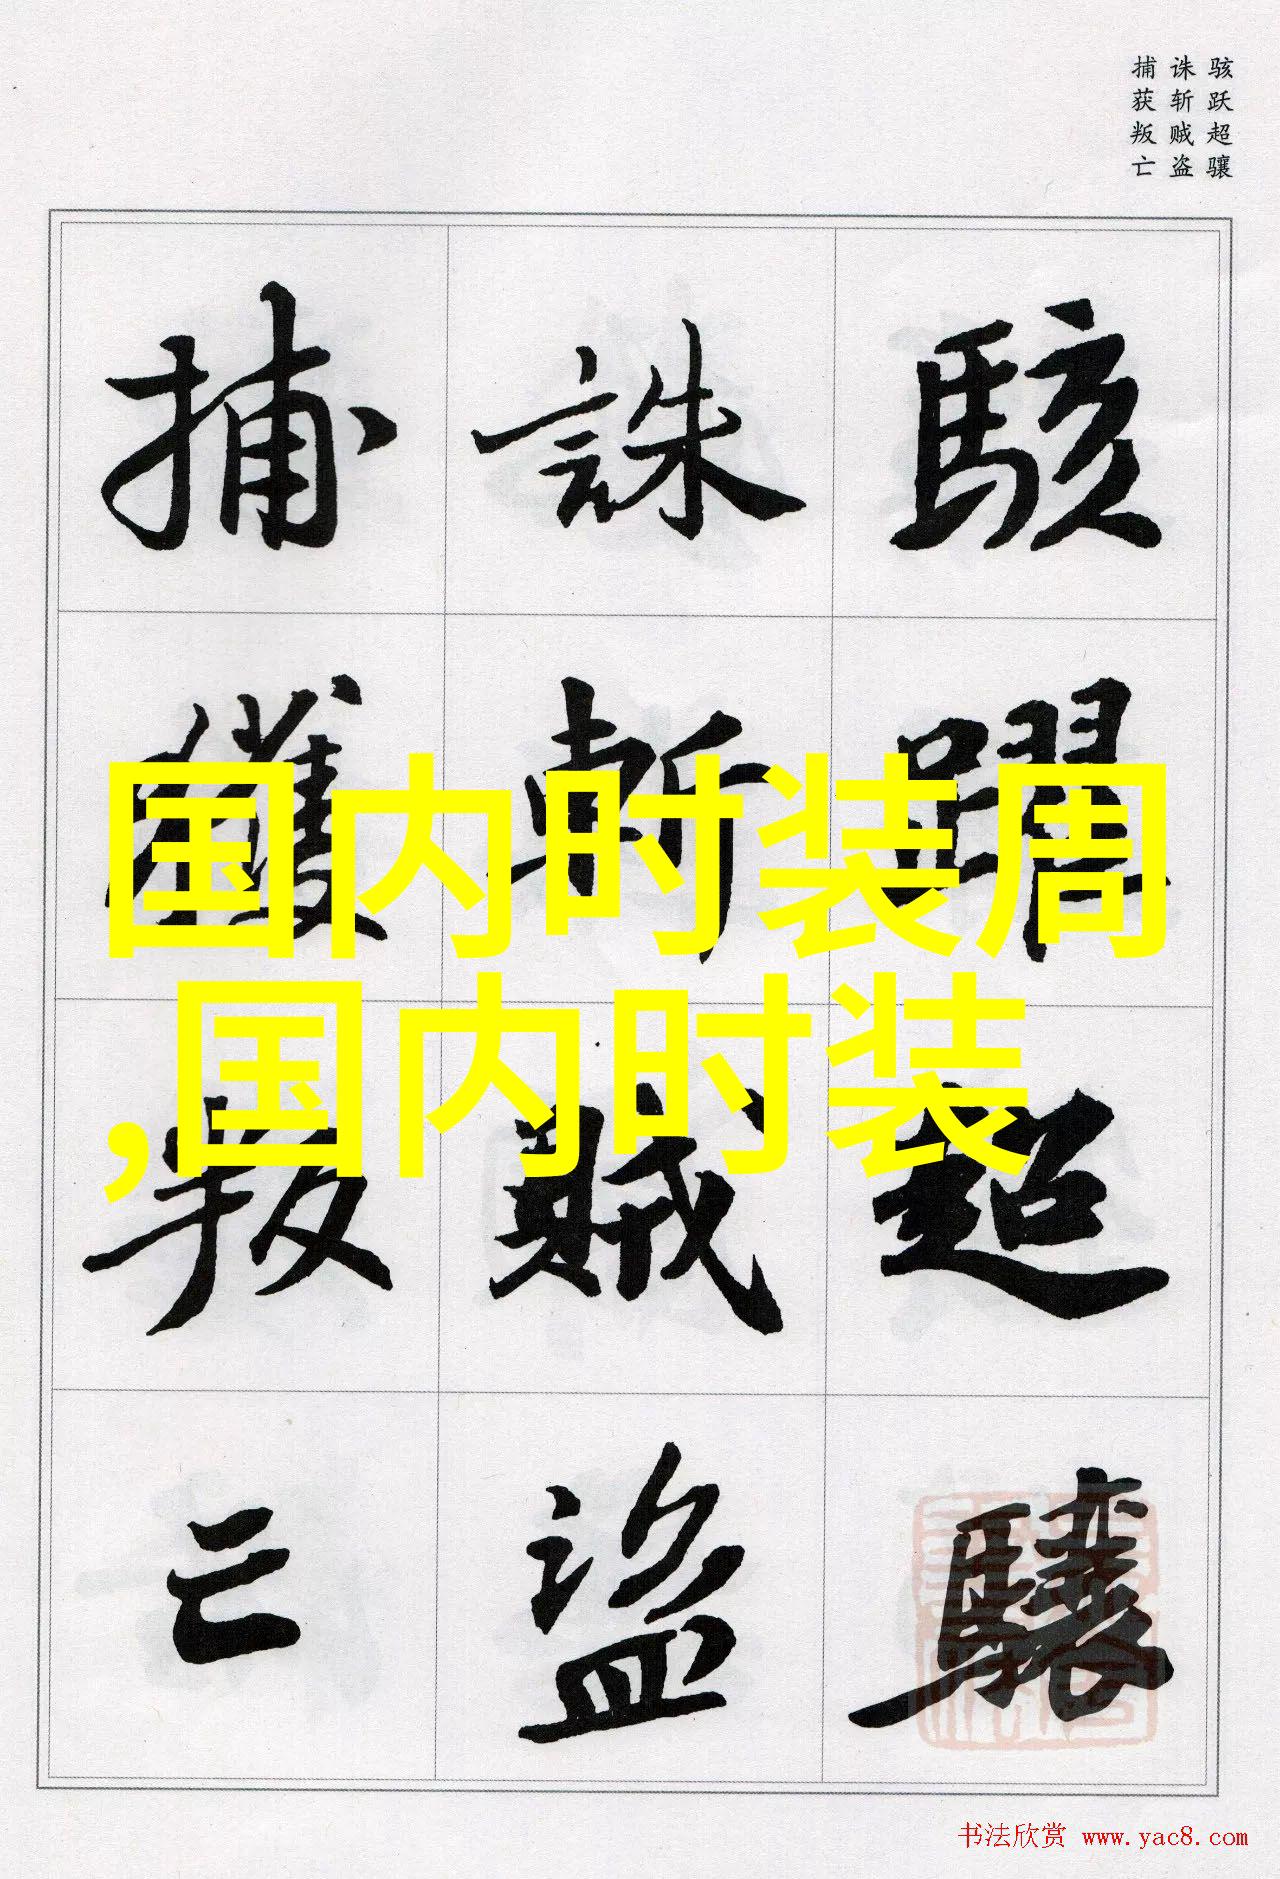 骇跃超骧
诛斩贼盗
捕获叛亡
駭躍超驤
誅斬賊盜
捕獲叛亡
国内时装周
,国内时装
书法欣赏 www.yac8.com